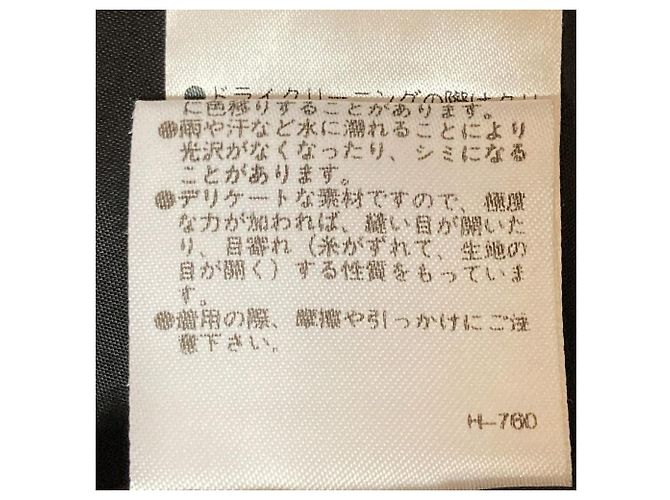 ●ドライクリーニングの際はクリ
に色移りすることがあります。
●雨や汗など水に濡れることにより
光沢がなくなったり、シミになる
ことがあります。
●デリケートな素材ですので、極度
な力が加われば、縫い目が開いた
り、目寄れ（糸がずれて、生地の
目が開く）する性質をもっていま
す。
●着用の際、摩擦や引っかけにご注
意下さい。
H-760